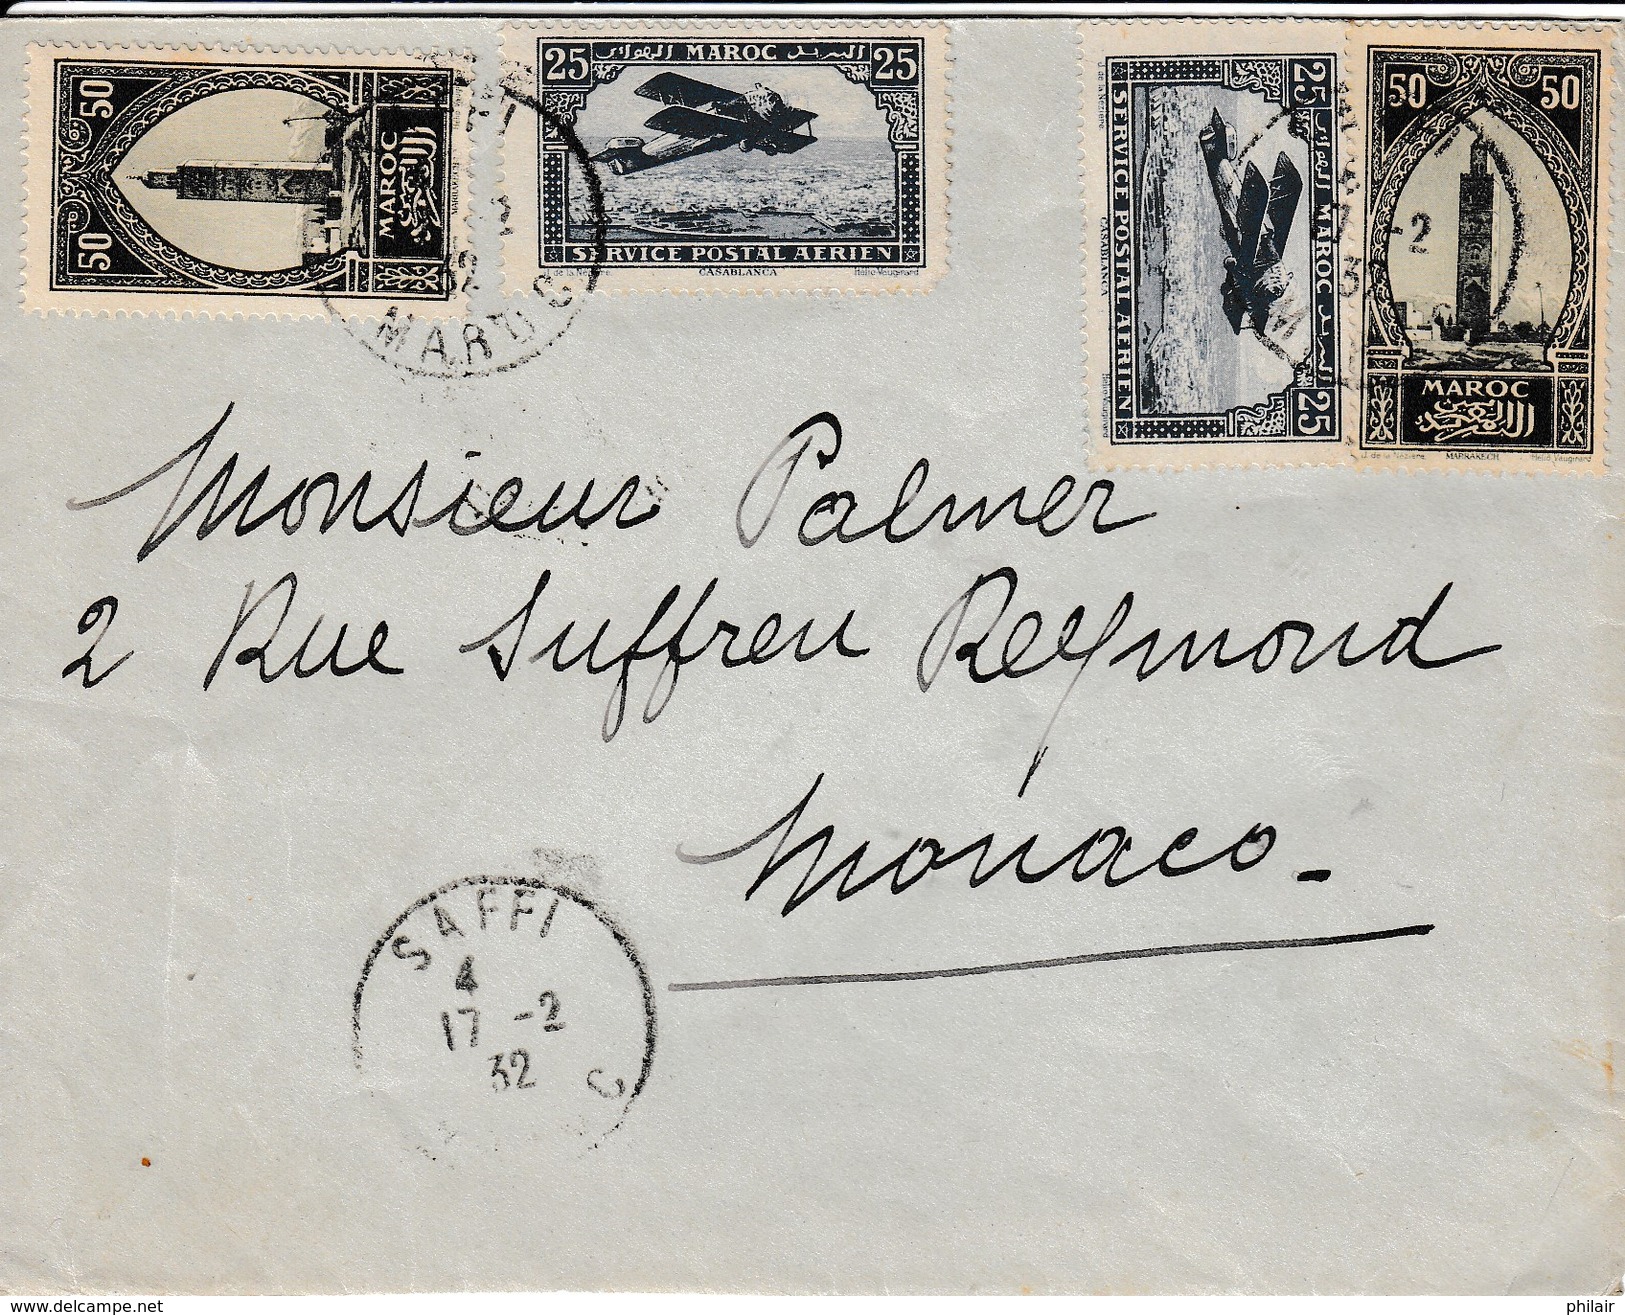 50
50
MAROC
المغرب
MARRAKECH
25 MAROC البريد الهوائي 25
SERVICE POSTAL AERIEN
J. de la Nézière CASABLANCA Hélio Vaugirard
25 MAROC البريد الهوائي 25
SERVICE POSTAL AERIEN
J. de la Nézière CASABLANCA Hélio Vaugirard
50 50
MAROC
المغرب
J. de la Nézière MARRAKECH Hélio Vaugirard
32
MAROC
17 -2
32
Monsieur Palmer
2 Rue Suffren Reymond
Monaco.
SAFFI
4
17 -2
32
C
www.delcampe.net
philair